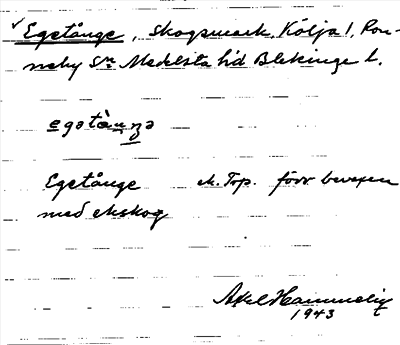 √ Egetånge, skogsmark, Kölja 1, Ron-
neby Sn Medelsta hd Blekinge l.
egetànga
Egetånge ek. Top. förr bevuxen
med ekskog
Axel Hammelig
1943